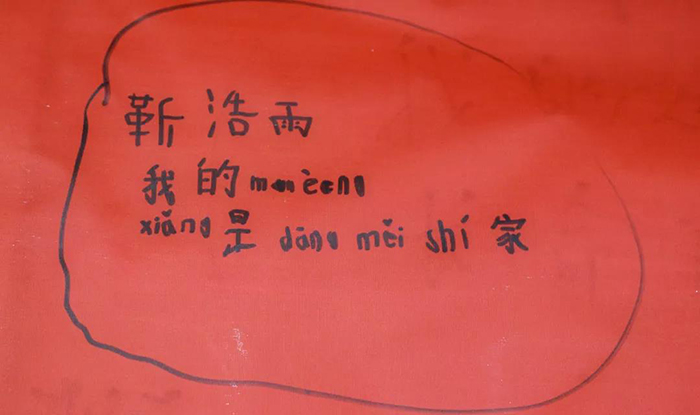 靳浩雨
我的mèng
xiǎng是dāng měi shí家